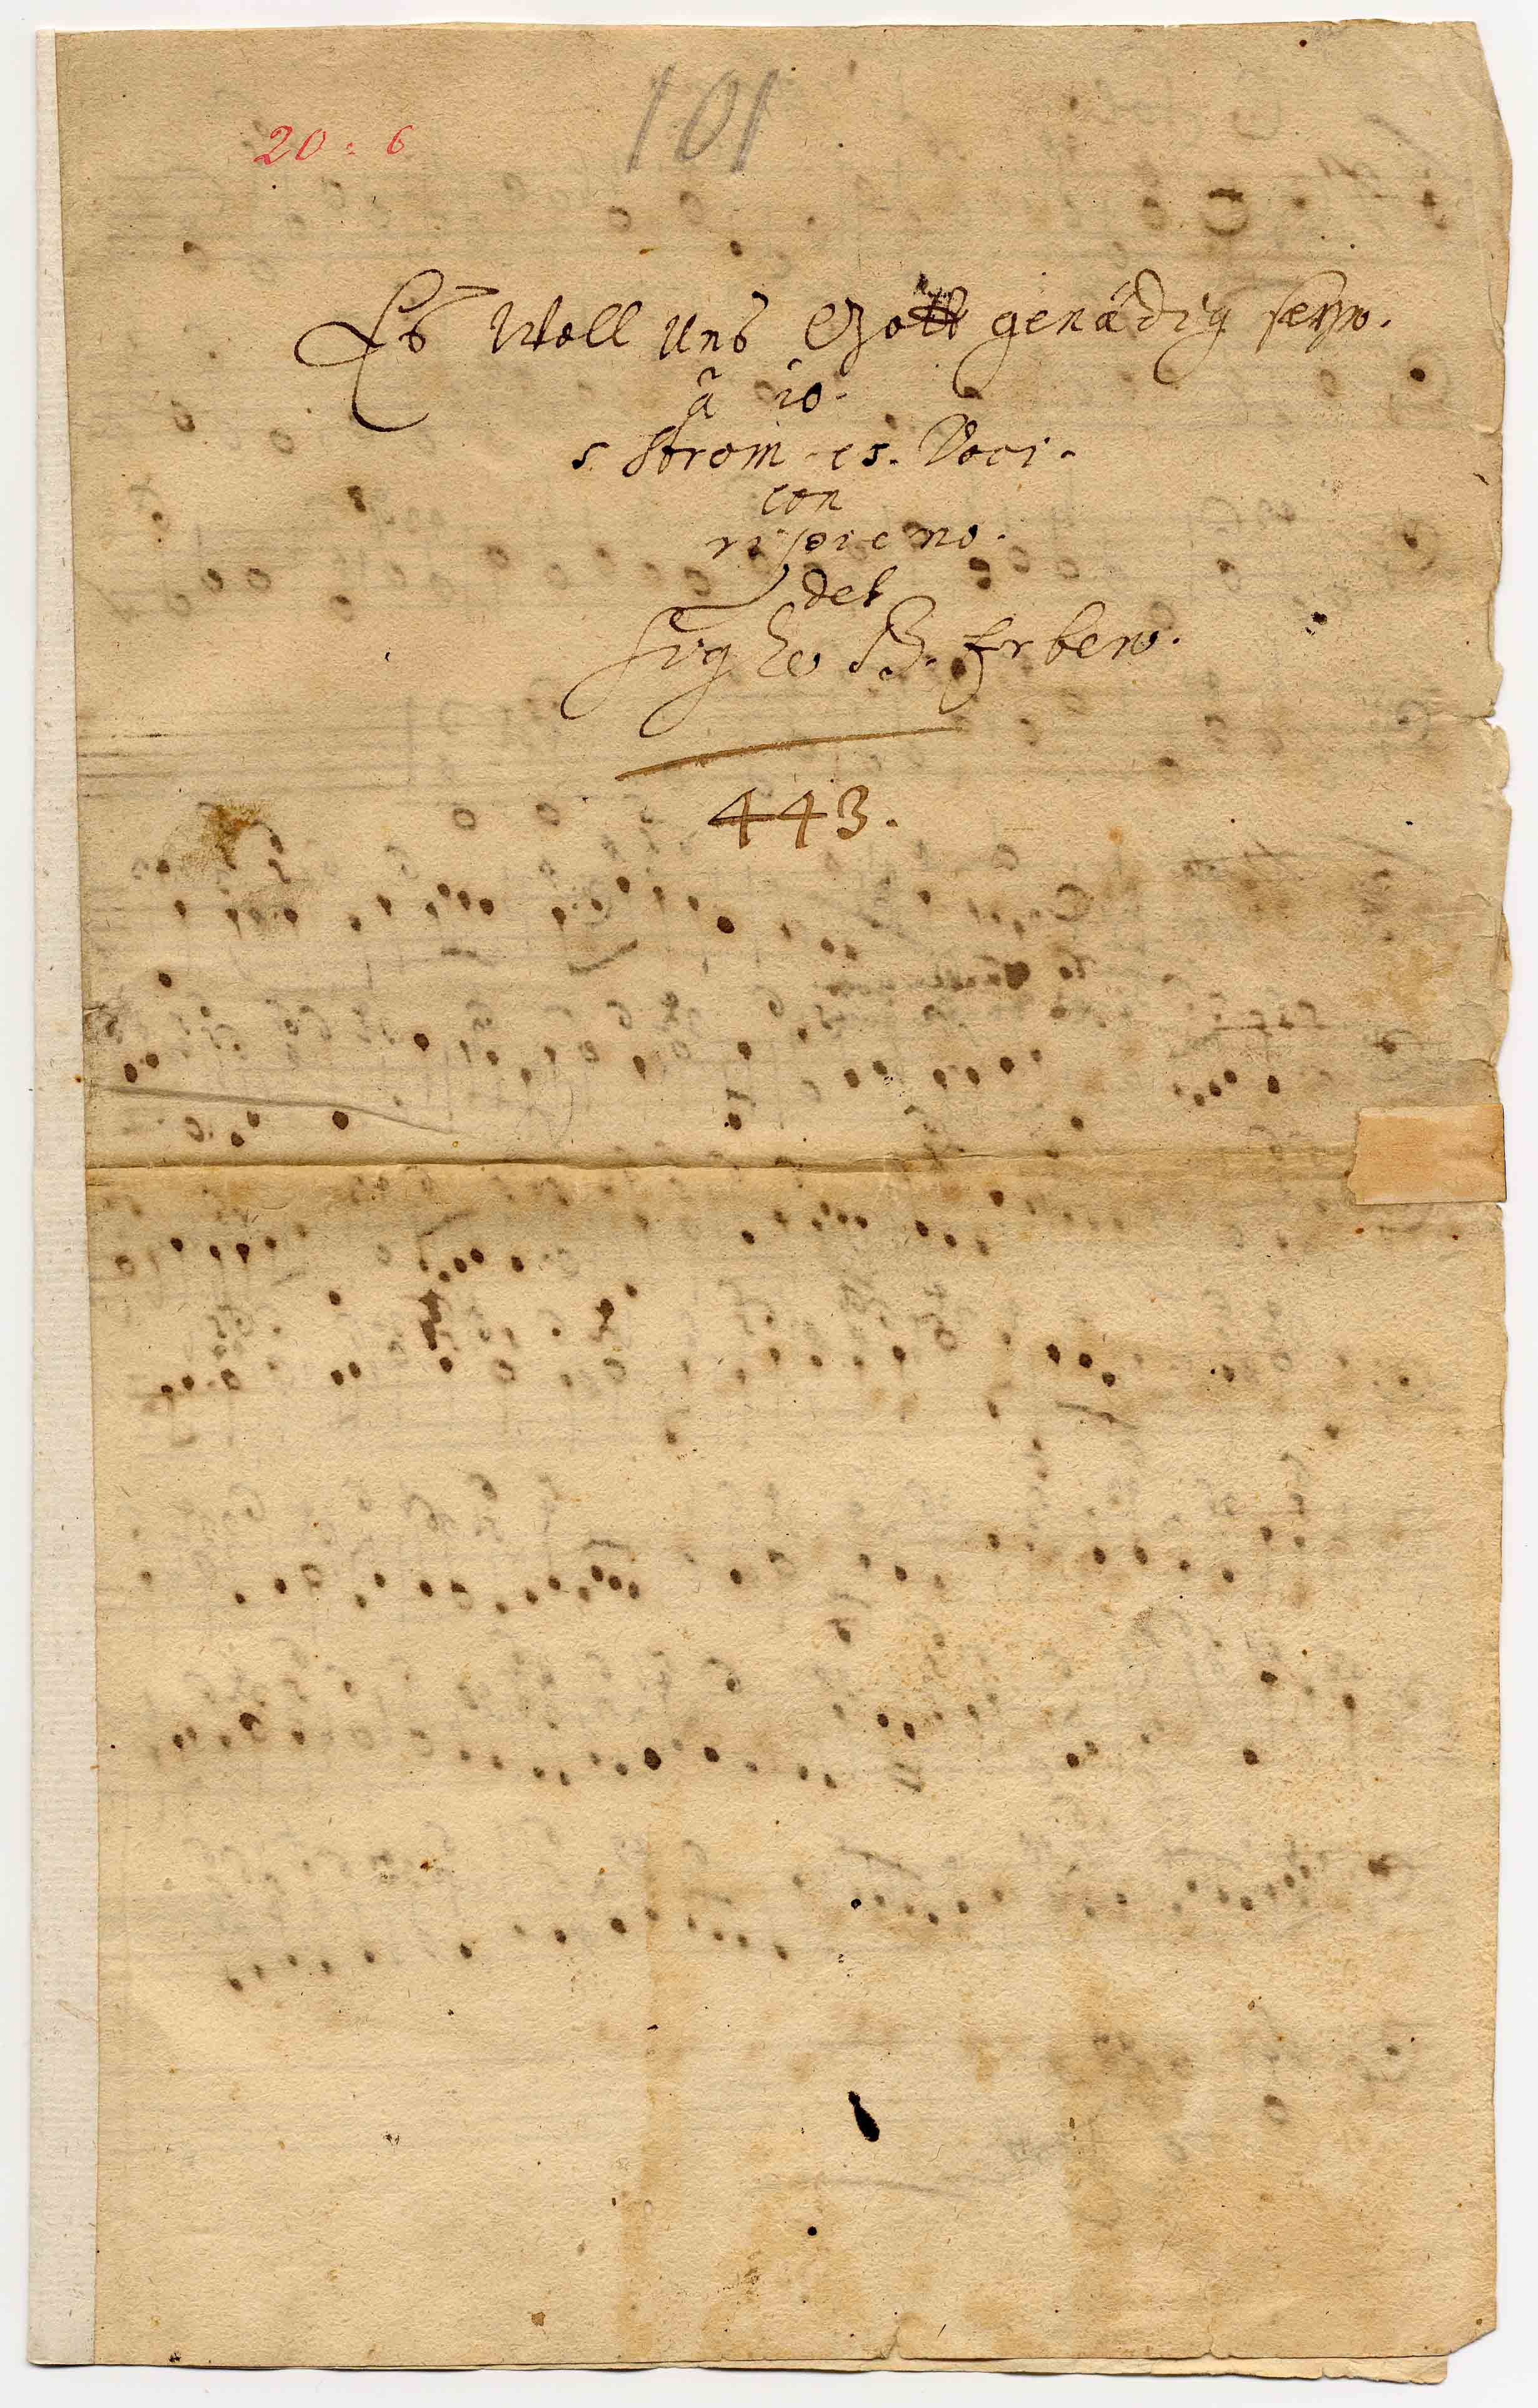 101
20: 6
Es Woll Uns Gott genädig seyn.
à 10.
5. Strom. e 5. Voci.
con
ripieno.
del
Sigre B. Erben.
443.